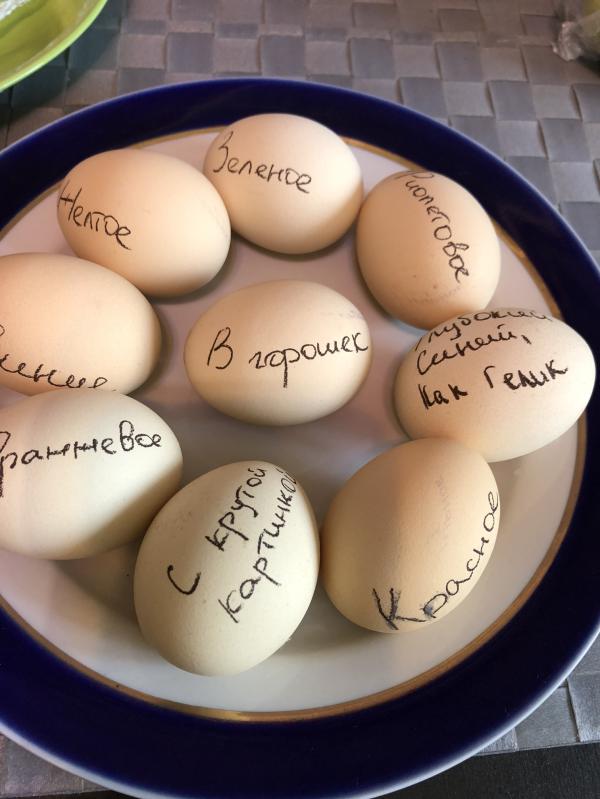 Зеленое
Желтое
Фиолетовое
В горошек
Глубокий
Синий,
как Гелик
Оранжевое
С крутой
картинкой
Красное